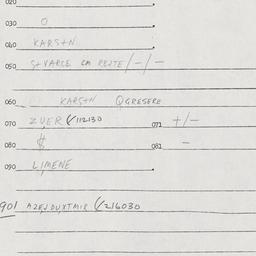 020
030 O
040 KARS+N
050 S+VARCE CM REJTE/-/-
060 KARS+N QGRESERE
070 ZUER (/112130 071 +/-
080 $ 081 -
090 LIMENE
901 AZEJDUXTMIR (/216030